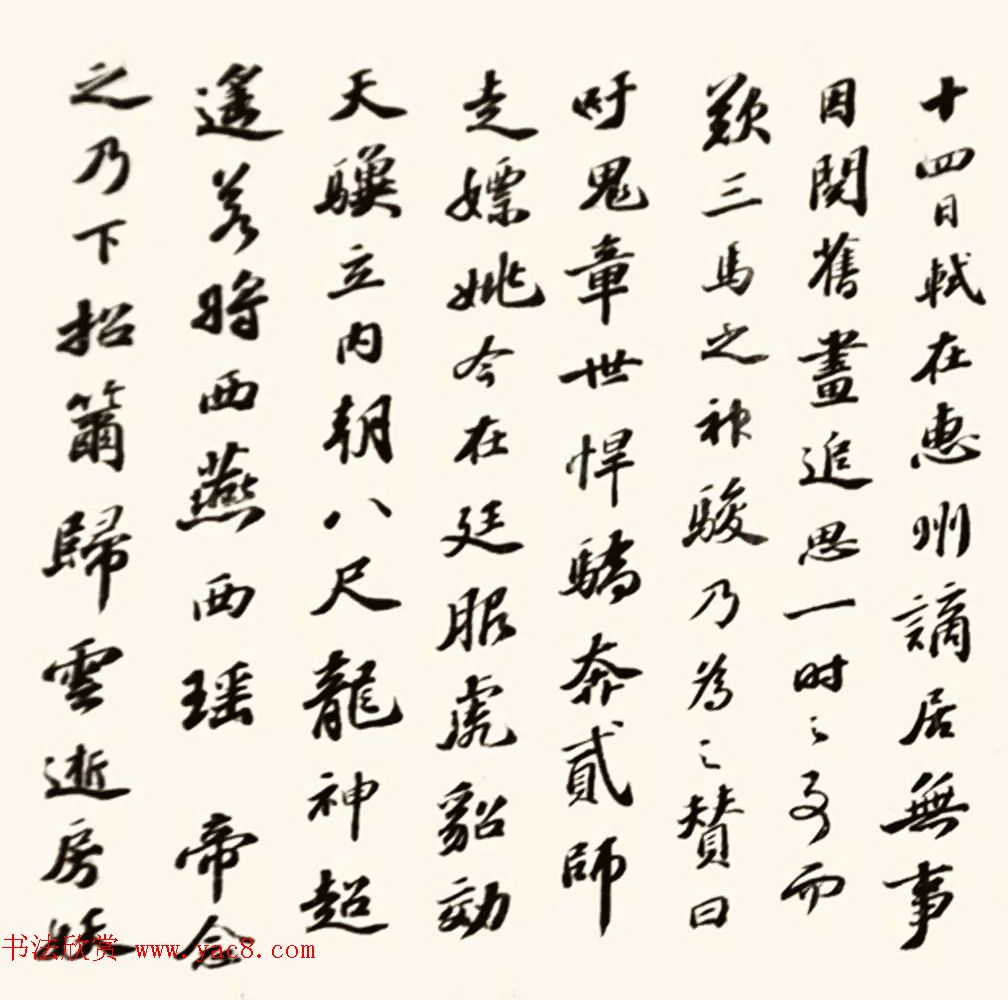 十四日軾在惠州謫居無事
因閱舊畫追思一時之事而
歎三馬之神駿乃為之贊曰
吁鬼章世悍驕奔貳師
走嫖姚今在廷服虎貂効
天驥立內朝八尺龍神超
遙若將西燕西瑤帝念
之乃下招籋歸雲逝房妖
书法欣赏 www.yac8.com